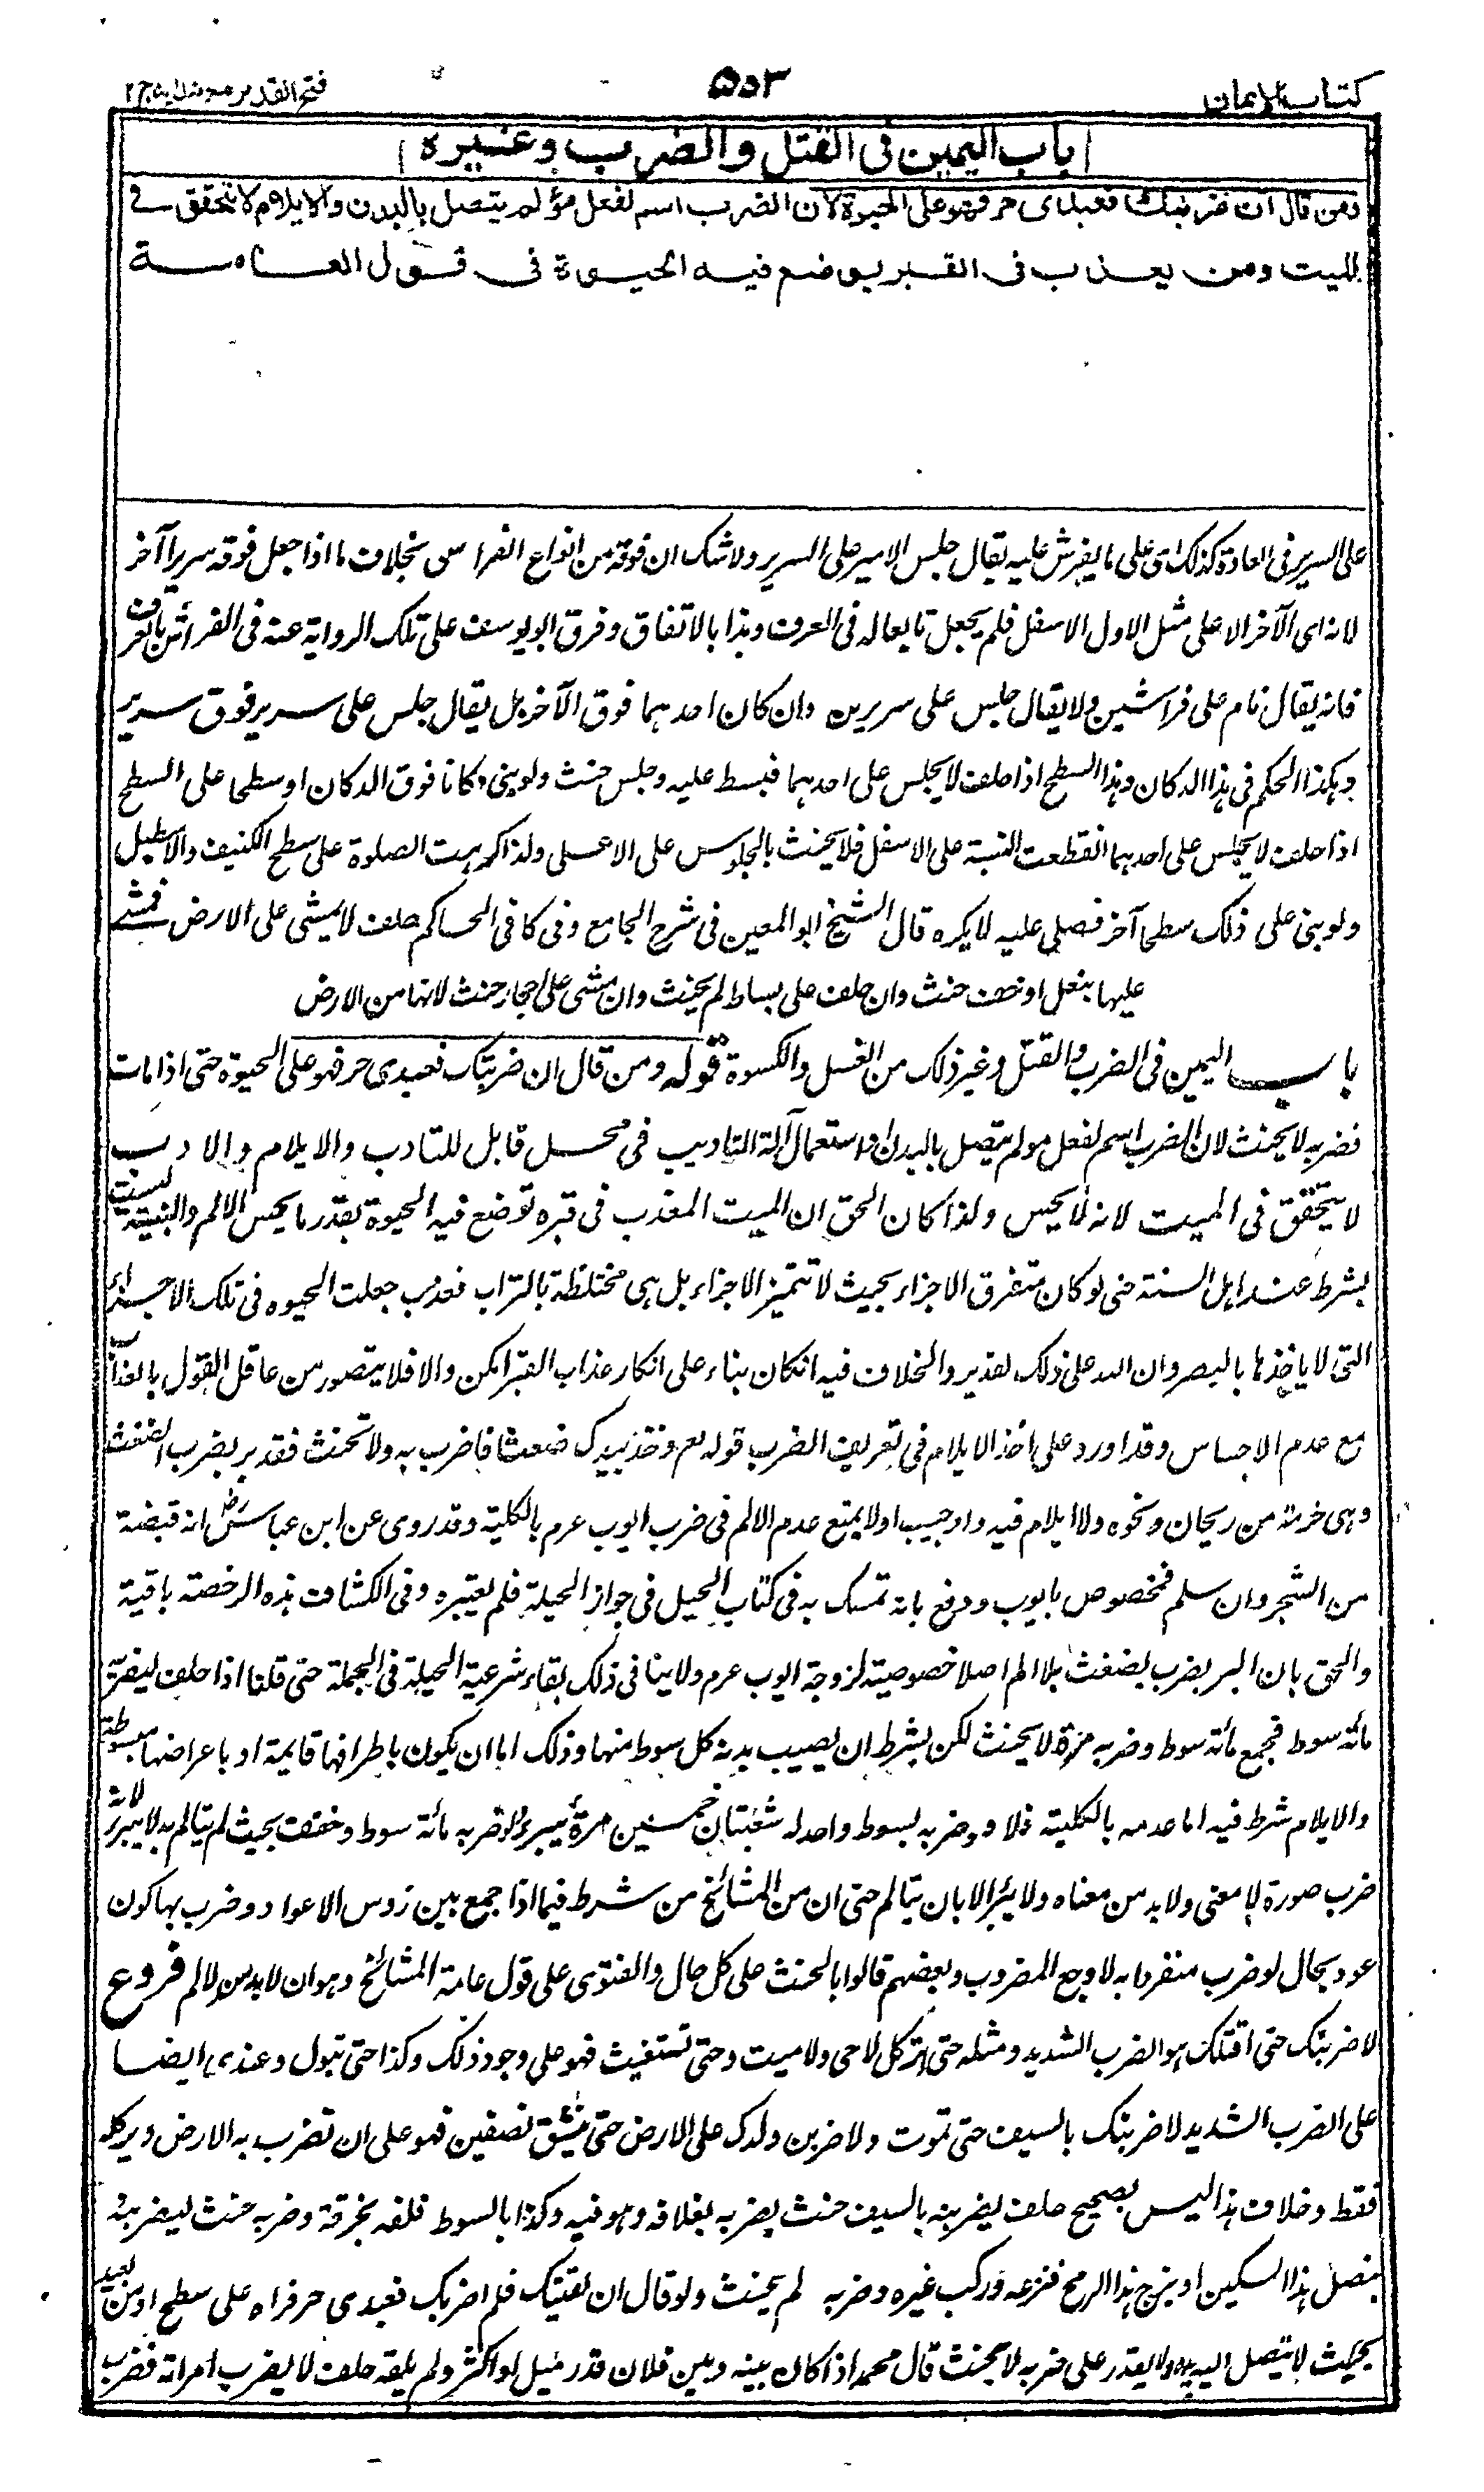 كتاب الايمان
۵۵۳
فتح القدير مع هدايه ج ۲
باب اليمين فى القتل والضرب وغيره
ومن قال ان ضربتك فعبدى حر فهو على الحيوة لان الضرب اسم لفعل مؤلم يتصل بالبدن والايلام لا يتحقق فى
الميت ومن يعذب فى القبر يوضع فيه الحيوة فى قول العامة
على السرير فى العادة كذلك اى على ما يفرش عليه يقال جلس الامير على السرير ولا شك ان فوقه من انواع الفراش بخلاف ما اذا جعل فوقه سريرا آخر
لانه اى الآخر الاعلى مثل الاول الاسفل فلم يجعل تابعا له فى العرف وهذا بالاتفاق وفرق ابو يوسف على تلك الرواية عنه فى الفراش بالعرف
فانه يقال نام على فراشين ولا يقال جلس على سريرين وان كان احدهما فوق الآخر بل يقال جلس على سرير فوق سرير
وهكذا الحكم فى هذا الدكان وهذا السطح اذا حلف لا يجلس على احدهما فبسط عليه وجلس حنث ولو بنى دكانا فوق الدكان او سطحا على السطح
اذا حلف لا يجلس على احدهما انقطعت النسبة على الاسفل فلا يحنث بالجلوس على الاعلى ولذا كرهت الصلوة على سطح الكنيف والاصطبل
ولو بنى على ذلك سطحا آخر فصلى عليه لا يكره قال الشيخ ابو المعين فى شرح الجامع وفى كافى الحاكم حلف لا يمشى على الارض فمشى
عليها بنعل او خف حنث وان حلف على بساط لم يحنث وان مشى على احجار حنث لانها من الارض
باب اليمين فى الضرب والقتل وغير ذلك من الغسل والكسوة قوله ومن قال ان ضربتك فعبدى حر فهو على الحيوة حتى اذا مات
فضربه لا يحنث لان الضرب اسم لفعل مولم يتصل بالبدن او استعمال آلة التاديب فى محل قابل للتادب والايلام والادب
لا يتحقق فى الميت لانه لا يحس ولذا كان الحق ان الميت المعذب فى قبره توضع فيه الحيوة بقدر ما يحس الالم والبنية ليست
بشرط عند اهل السنة حتى لو كان متفرق الاجزاء بحيث لا تتميز الاجزاء بل هى مختلطة بالتراب فعذب جعلت الحيوه فى تلك الاجزاء
التى لا ياخذها بالبصر وان الله على ذلك لقدير والخلاف فيه ان كان بناء على انكار عذاب القبر امكن والا فلا يتصور من عاقل القول بالعذاب
مع عدم الاحساس وقد اورد على اخذ الايلام فى تعريف الضرب قوله تعم وخذ بيدك ضغثا فاضرب به ولا تحنث فقد بر بضرب الضغث
وهى حزمة من ريحان ونحوه ولا ايلام فيه واجيب اولا يمنع عدم الالم فى ضرب ايوب عرم بالكلية وقد روى عن ابن عباس رض انه قبضة
من الشجر وان سلم فمخصوص بايوب ودفع بانه تمسك به فى كتاب الحيل فى جواز الحيلة فلم يعتبره وفى الكشاف هذه الرخصة باقية
والحق بان البر بضرب بضغث بلا الم اصلا خصوصية لزوجة ايوب عرم ولا ينافى ذلك بقاء شرعية الحيلة فى الجملة حتى قلنا اذا حلف ليضربنه
مائة سوط فجمع مائة سوط وضربه مرة لا يحنث لكن بشرط ان يصيب بدنه كل سوط منها وذلك اما ان يكون باطرافها قايمة او باعراضها مبسوطة
والايلام شرط فيه اما عدمه بالكلية فلا ولو ضربه بسوط واحد له شعبتان خمسين مرة يبر ولو ضربه مائة سوط وخفف بحيث لم يتالم به لا يبر لانه
ضرب صورة لا معنى ولا بد من معناه ولا يبر الا بان يتالم حتى ان من المشائخ من شرط فيما اذا جمع بين رؤس الاعواد وضرب بها كون
عود بحال لو ضرب منفردا به لاوجع المضروب وبعضهم قالوا بالحنث على كل حال والفتوى على قول عامة المشائخ وهو ان لا بد من الالم فروع
لاضربنك حتى اقتلك هو الضرب الشديد ومثله حتى اتركك لا حى ولا ميت وحتى تستغيث فهو على وجود ذلك وكذا حتى تبول وعندى ايضا
على الضرب الشديد لاضربنك بالسيف حتى تموت ولاضربن ولدك على الارض حتى ينشق نصفين فهو على ان تضرب به الارض ويركله
فقط وخلاف هذا ليس بصحيح حلف ليضربنه بالسيف حنث بضربه بغلافه وهو فيه وكذا بالسوط فلفه بخرقة وضربه حنث ليضربنه
بنصل هذا السكين او بزج هذا الرمح فنزعه وركب غيره وضربه لم يحنث ولو قال ان لقيتك فلم اضربك فعبدى حر فراه على سطح او من بعيد
بحيث لا يتصل اليه يده ولا يقدر على ضربه لا يحنث قال محمد اذا كان بينه وبين فلان قدر ميل او اكثر ولم يلقه حلف لا يضرب امراته فضرب